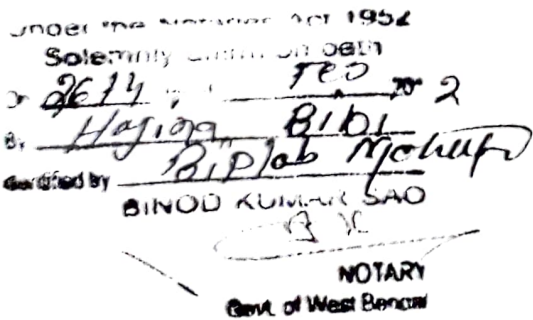 Under the Notaries Act 1952
Solemnly affirm on oath
On 26th Feb 20 2
By Hajira Bibi
Certified by Biplab
BINOD KUMAR SAO
NOTARY
Govt. of West Bengal